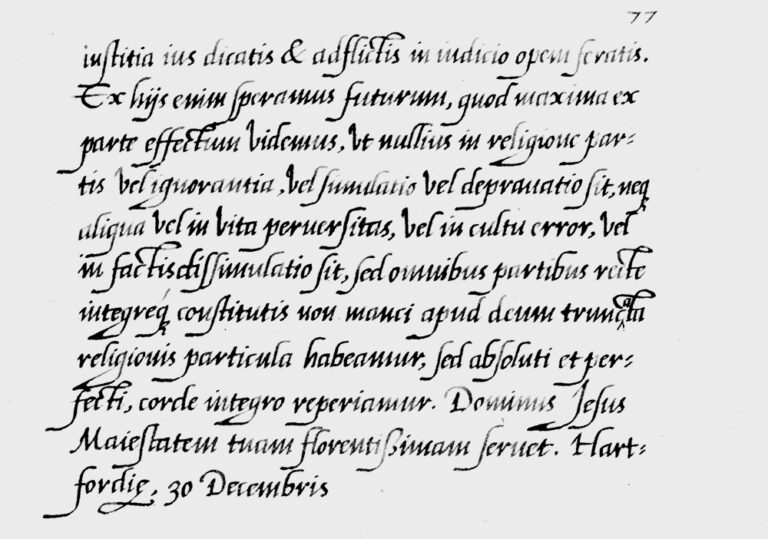 77
iustitia ius dicatis & adflictis in iudicio opem feratis.
Ex hijs enim speramus futurum, quod maxima ex
parte effectum videmus, vt nullius in religione par-
tis vel ignorantia, vel simulatio vel deprauatio sit, neq
aliqua vel in vita peruersitas, vel in cultu error, vel
in factis dissimulatio sit, sed omnibus partibus recte
integreq́ constitutis non manci apud deum truncata
religionis particula habeamur, sed absoluti et per-
fecti, corde integro reperiamur. Dominus Jesus
Maiestatem tuam florentissimam seruet. Hart-
fordię. 30 Decembris